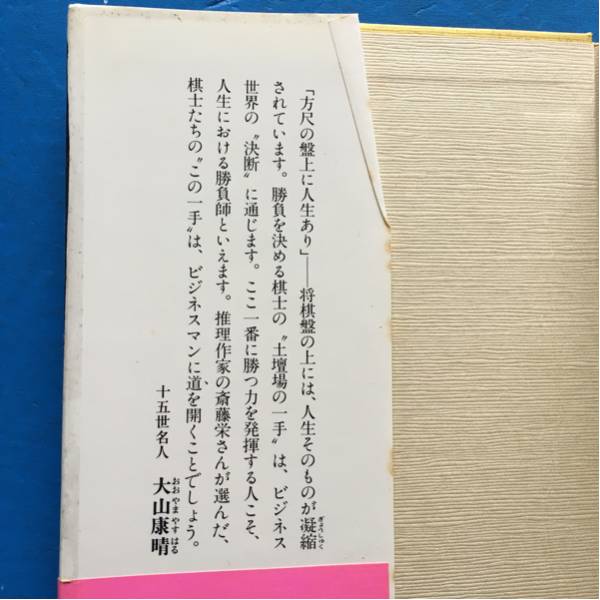 「方尺の盤上に人生あり」――将棋盤の上には、人生そのものが凝縮
ぎょうしゅく
されています。勝負を決める棋士の〝土壇場の一手〟は、ビジネス
世界の〝決断〟に通じます。ここ一番に勝つ力を発揮する人こそ、
人生における勝負師といえます。推理作家の斎藤栄さんが選んだ、
棋士たちの〝この一手〟は、ビジネスマンに道を開くことでしょう。
十五世名人 大山康晴
おおやまやすはる